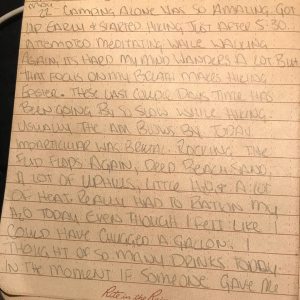 MON
22 CAMPING ALONE WAS SO AMAZING. GOT
UP EARLY & STARTED HIKING JUST AFTER 5:30.
ATTEMPTED MEDITATING WHILE WALKING
AGAIN, ITS HARD MY MIND WANDERS A LOT BUT
THAT FOCUS ON MY BREATH MAKES HIKING
EASIER. THESE LAST COUPLE DAYS TIME HAS
BEEN GOING BY SO SLOW WHILE HIKING.
USUALLY THE AM BLOWS BY. TODAY
INPARTICULAR WAS BRUTAL. ROCKING THE
FLIP FLOPS AGAIN, DEEP BEACH SAND,
A LOT OF UPHILLS, LITTLE H2O & A LOT
OF HEAT. REALLY HAD TO RATION MY
H2O TODAY EVEN THOUGH I FELT LIKE I
COULD HAVE CHUGGED A GALLON. I
THOUGHT OF SO MANY DRINKS TODAY.
IN THE MOMENT IF SOMEONE GAVE ME
Rite in the